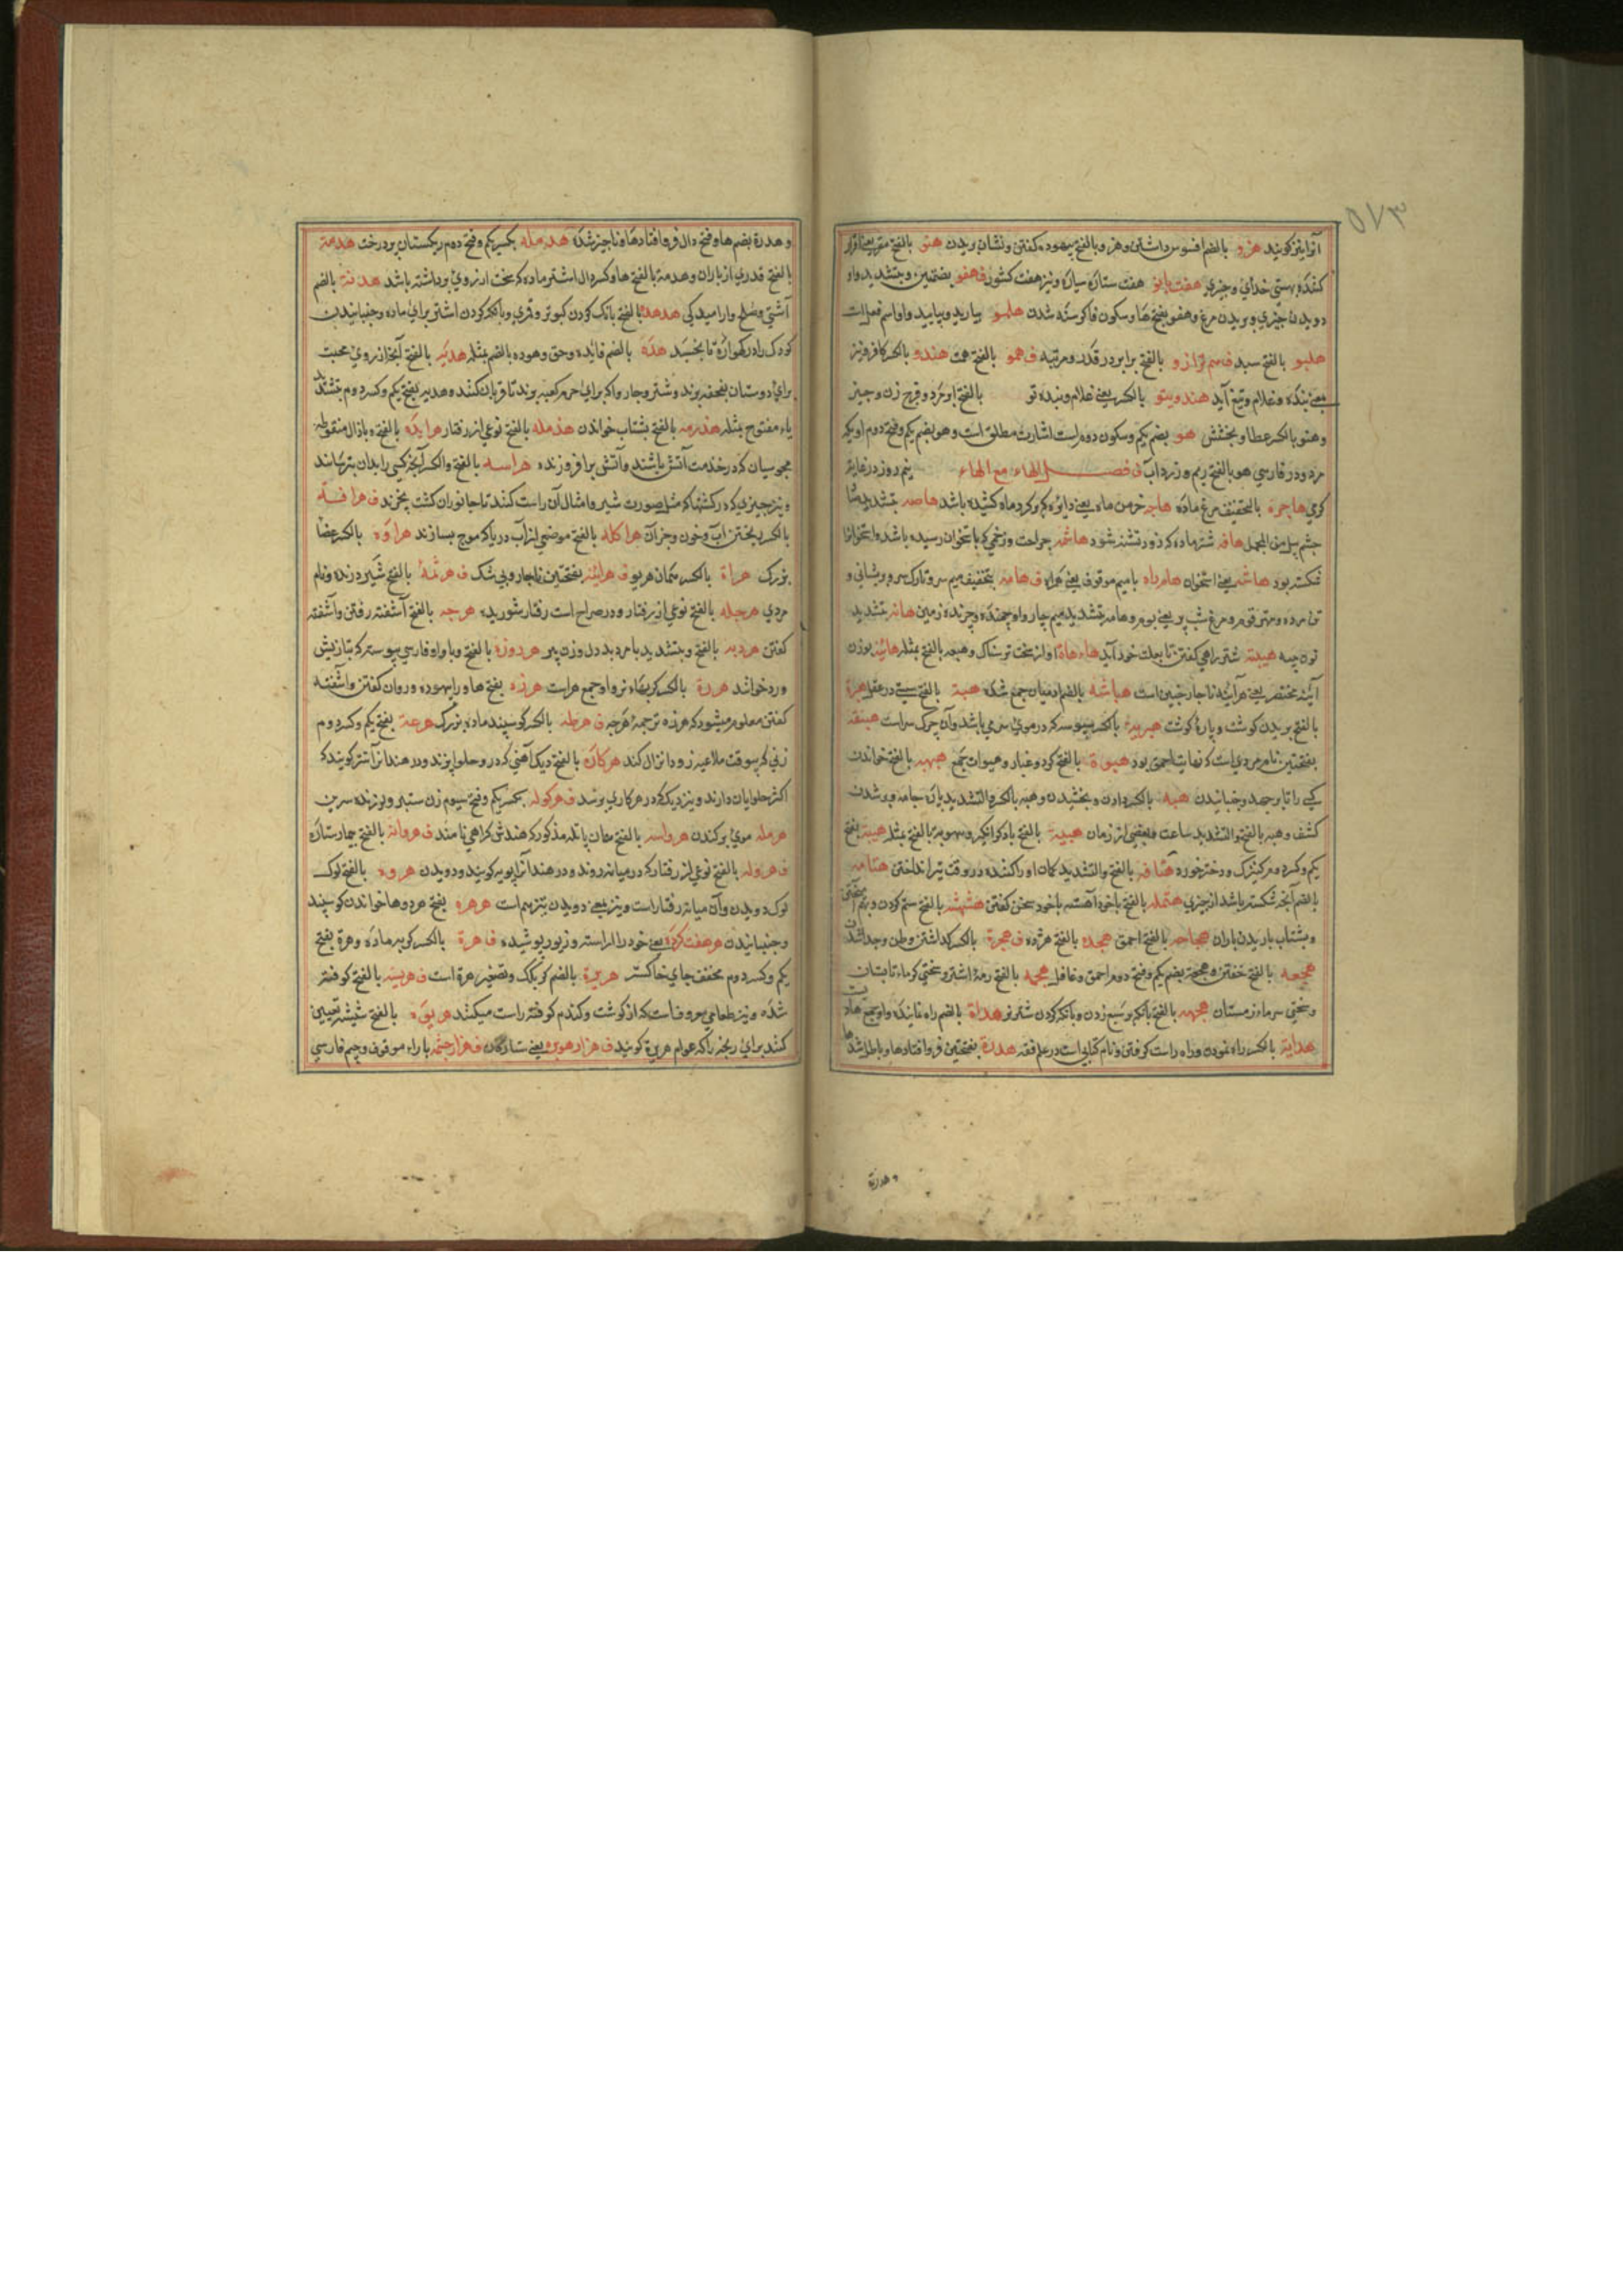 ٥٧٣
آنرا نیز گویند هزو بالضم افسوس داشتن و هزو بالفتح بیهوده گفتن و نشان بریدن هتو بالفتح
کننده بهستی خدای و چیزی هفت بانو هفت ستارۀ سیاره و نیز هفت کشور ف هفو بضمتین و بتشدید واو
دویدن چیزی و پریدن مرغ و هفو بفتح ها و سکون فا گرسنه شدن هلمو بیارید و بیایید و او اسم فعل است
هلیو بالفتح سبد ف هم ترازو بالفتح برابر در قدر و مرتبه ف همو بالفتح همت هندو بالکسر کافر و نیز
بمعنی بنده و غلام و تیغ آید هندوی تو بالکسر یعنی غلام و بنده تو بالفتح ابو مرد و فرج زن و چیز
و هنو بالکسر عطا و بخشش هو بضم یکم و سکون دوم راست اشارت مطلق است و هو بضم یکم و فتح دوم او یکم
مرد و در فارسی هو بالفتح ریم و زرداب ف فصل الهاء مع الهاء نیم روز در غایة
گرمی هاجرة بالتخفیف مرغ ماده هاله خرمن ماه یعنی دایره که گرد ماه کشیده باشد هامه بتشدید
چشم هافه شتر ماده که زود تشنه شود هاشمه جراحت و زخمی که باستخوان رسیده باشد و استخوانرا
شکسته بود هاشم یعنی استخوان همراه با میم موقوف یعنی همراه ف هامه بتخفیف میم سر و تارک سر و پیشانی و
تن مرده و مهتر قوم و مرغ شب پر یعنی بوم و هامه بتشدید میم چارواه جمنده و چرنده زمین هانه بتشدید
نون هیبة شتر راهی گفتن تا بعلف خود آید هاه هاه آواز سخت ترسناک و هیعه بالفتح مثله هائنه بوزن
آینه مختصر یعنی هرآینه ناچار چنین است هباشه بالضم آدمیان جمع شده هبة بالفتح سستی در عقل هبرة
بالفتح بریدن گوشت و پارۀ گوشت هبریة بالکسر سبوسه که در موی سر می باشد و آن چرک سر است هبنقه
بفتحتین نام مردی است که نهایت احمق بود هبوة بالفتح گرد و غبار و هبوات جمع هبهبه بالفتح خواندن
کسی را تا برجهد و جنبانیدن هبه بالکسر دادن و بخشیدن و هبه بالکسر و التشدید پارۀ جامه و برشدن
کشف و هبه بالفتح و التشدید ساعت و بعضی از زمان هبیبة بالفتح باد گرد انگیز هبیة بفتح
یکم و کسر دوم کنیزک و دختر خورد هتافه بالفتح و التشدید کمان آواز کننده در وقت تیر انداختن هتامه
بالضم آنچه شکسته باشد از چیزی هتمله بالفتح با خود آهسته با خود سخن گفتن هثهثه بالفتح ستم کردن
و بشتاب باریدن باران هجاجه بالفتح احمق هجده بالفتح هژده ف هجرة بالکسر گذاشتن وطن و جدا شدن
هجعه بالفتح خفتن و هجعة بضم یکم و فتح دوم احمق و غافل هجمه بالفتح رمۀ اشتر و سختی گرما تابستان
و سختی سرما زمستان هجهجه بالفتح بانگ بر سبع زدن و بانگ کردن شتر نر هداة بالضم راه نماینده و او جمع هادی است
هدایة بالکسر راه نمودن و راه راست گرفتن و نام کتابی است در علم فقه هدرة بفتحتین فرو افتاد ها و باطل شد ها
و هدرة
و هدرة بضم ها و فتح دال فرو افتاد ها و ناچیز شده هدمله بکسر یکم و فتح دوم ریگستان پر درخت هدمة
بالفتح قدری از باران و هدمة بالفتح ها و کسر دال اشتر ماده که سخت آرزوی برداشته باشد هدنة بالضم
آشتی و صلح و آرامیدگی هدهدة بالفتح بانگ کردن کبوتر و قمری و بانگ کردن اشتر برای ماده و جنبانیدن
کودک را در گهواره تا بخسبد هده بالضم فائده و حق و هوده بالضم مثله هدیه بالفتح آنچه از روی محبت
برای دوستان بتحفه برند و شتر و چارواکه برای حرم کعبه برند تا قربان کنند و هدیه بفتح یکم و کسر دوم بتشدید
یاء مفتوح مثله هذرمه بالفتح بشتاب خواندن هذمله بالفتح نوعی از رفتار هرابذه بالفتح و با ذال منقوطه
مجوسیان که در خدمت آتش باشند و آتش برافروزند هراسه بالفتح و الکسر آنچه کسی را بدان بترسانند
و نیز چیزی که در کشتها که مثل صورت شیر و امثال آن راست کنند تا جانوران کشت نخورند ف هراقة
بالکسر ریختن آب و خون و جز آن هراکله بالفتح موضعی از آب دریا که موج بسیار زند هراوه بالکسر عصا
بزرگ هراة بالکسر همان هریو ف هرآینه بفتحتین ناچار و بی شک ف هرثمة بالفتح شیر درنده و نام
مردی هرجله بالفتح نوعی از رفتار و در صراح است رفتار شوریده هرجه بالفتح آشفته رفتن و آشفته
گفتن هردبه بالفتح و بتشدید با مرد بددل و زن پیر هر دوزه بالفتح و با واو فارسی پیوسته
و ردخوانند هررة بالکسر گربهاء نر و او جمع هر است هرزه بفتح ها و را بیهوده و روان گفتن و آشفته
گفتن معلوم میشود که هرزه ترجمۀ هرجه ف هرطله بالکسر گوسپند ماده بزرگ هرعة بفتح یکم و کسر دوم
زنی که بوقت ملاعبه زود انزال کند هرکاره بالفتح دیگ آهنی که در و حلوا پزند و در هند آنرا گویند که
اکثر حلوایان دارند و نیز دیگ که در هر کاری برند ف هرکوله بکسر یکم و فتح سیوم زن ستبر و لرزنده سرین
هرمله موی برکندن هرواسه بالفتح همان پاتله مذکور که هندش کراهی نامند ف هروانه بالفتح بیمارستان
ف هروله بالفتح نوعی از رفتار که در میانه روند و در هند آنرا پویه گویند و دویدن هروه بالفتح لوک
لوک دویدن و آن میانه رفتار است و نیز بمعنی دویدن تیز هم است هرهره بفتح هر دو ها خواندن گوسپند
و جنبانیدن هر هفت کرده یعنی خود را آراسته و زیور پوشیده ف هرة بالکسر گربه ماده و هرة بفتح
یکم و کسر دوم مخفف جای خاکستر هریرة بالضم گربگک و تصغیر هرة است ف هریسه بالفتح کوفته
شده و نیز طعامی معروف است که از گوشت و گندم کوفته راست میکنند هریوه بالفتح شیشه
کنند برای ریخته را که عوام هریرة گویند ف هزار هوبره یعنی ستارگان ف هزار چشمه با راء موقوف و جیم فارسی